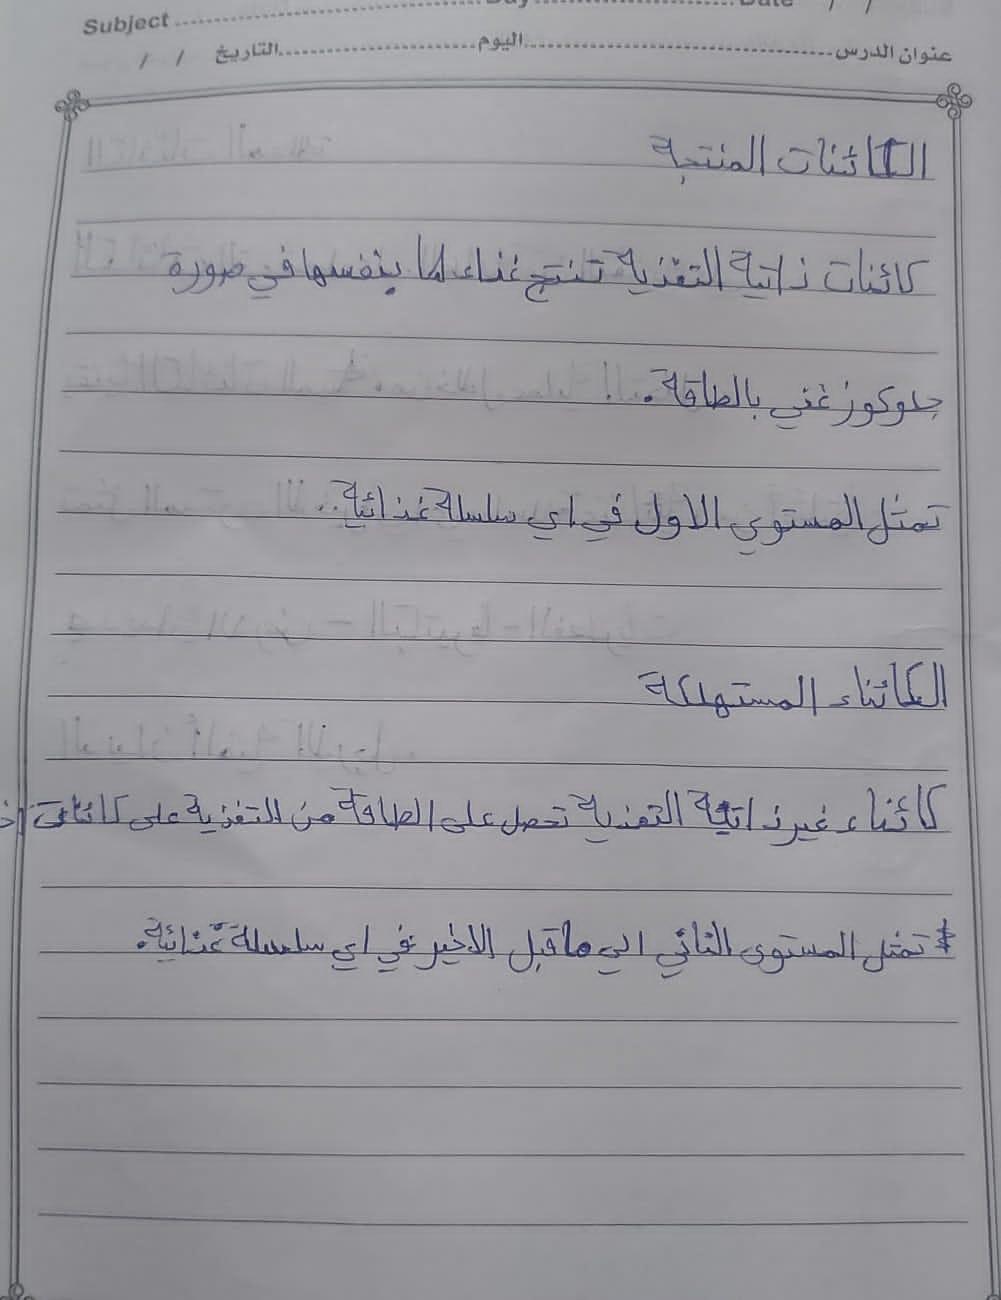 Subject
عنوان الدرس اليوم التاريخ / /
الكائنات المنتجة
كائنات ذاتية التغذية تنتج غذاء لها بنفسها في صورة
جلوكوز غني بالطاقة.
تمثل المستوي الاول في اي سلسلة غذائية..
الكائناء المستهلكة
كائناء غير ذاتية التغذية تحصل على الطاقة من التغذية على كائنات
* تمثل المستوى الثاني الي ما قبل الاخير في اي سلسلة غذائية.